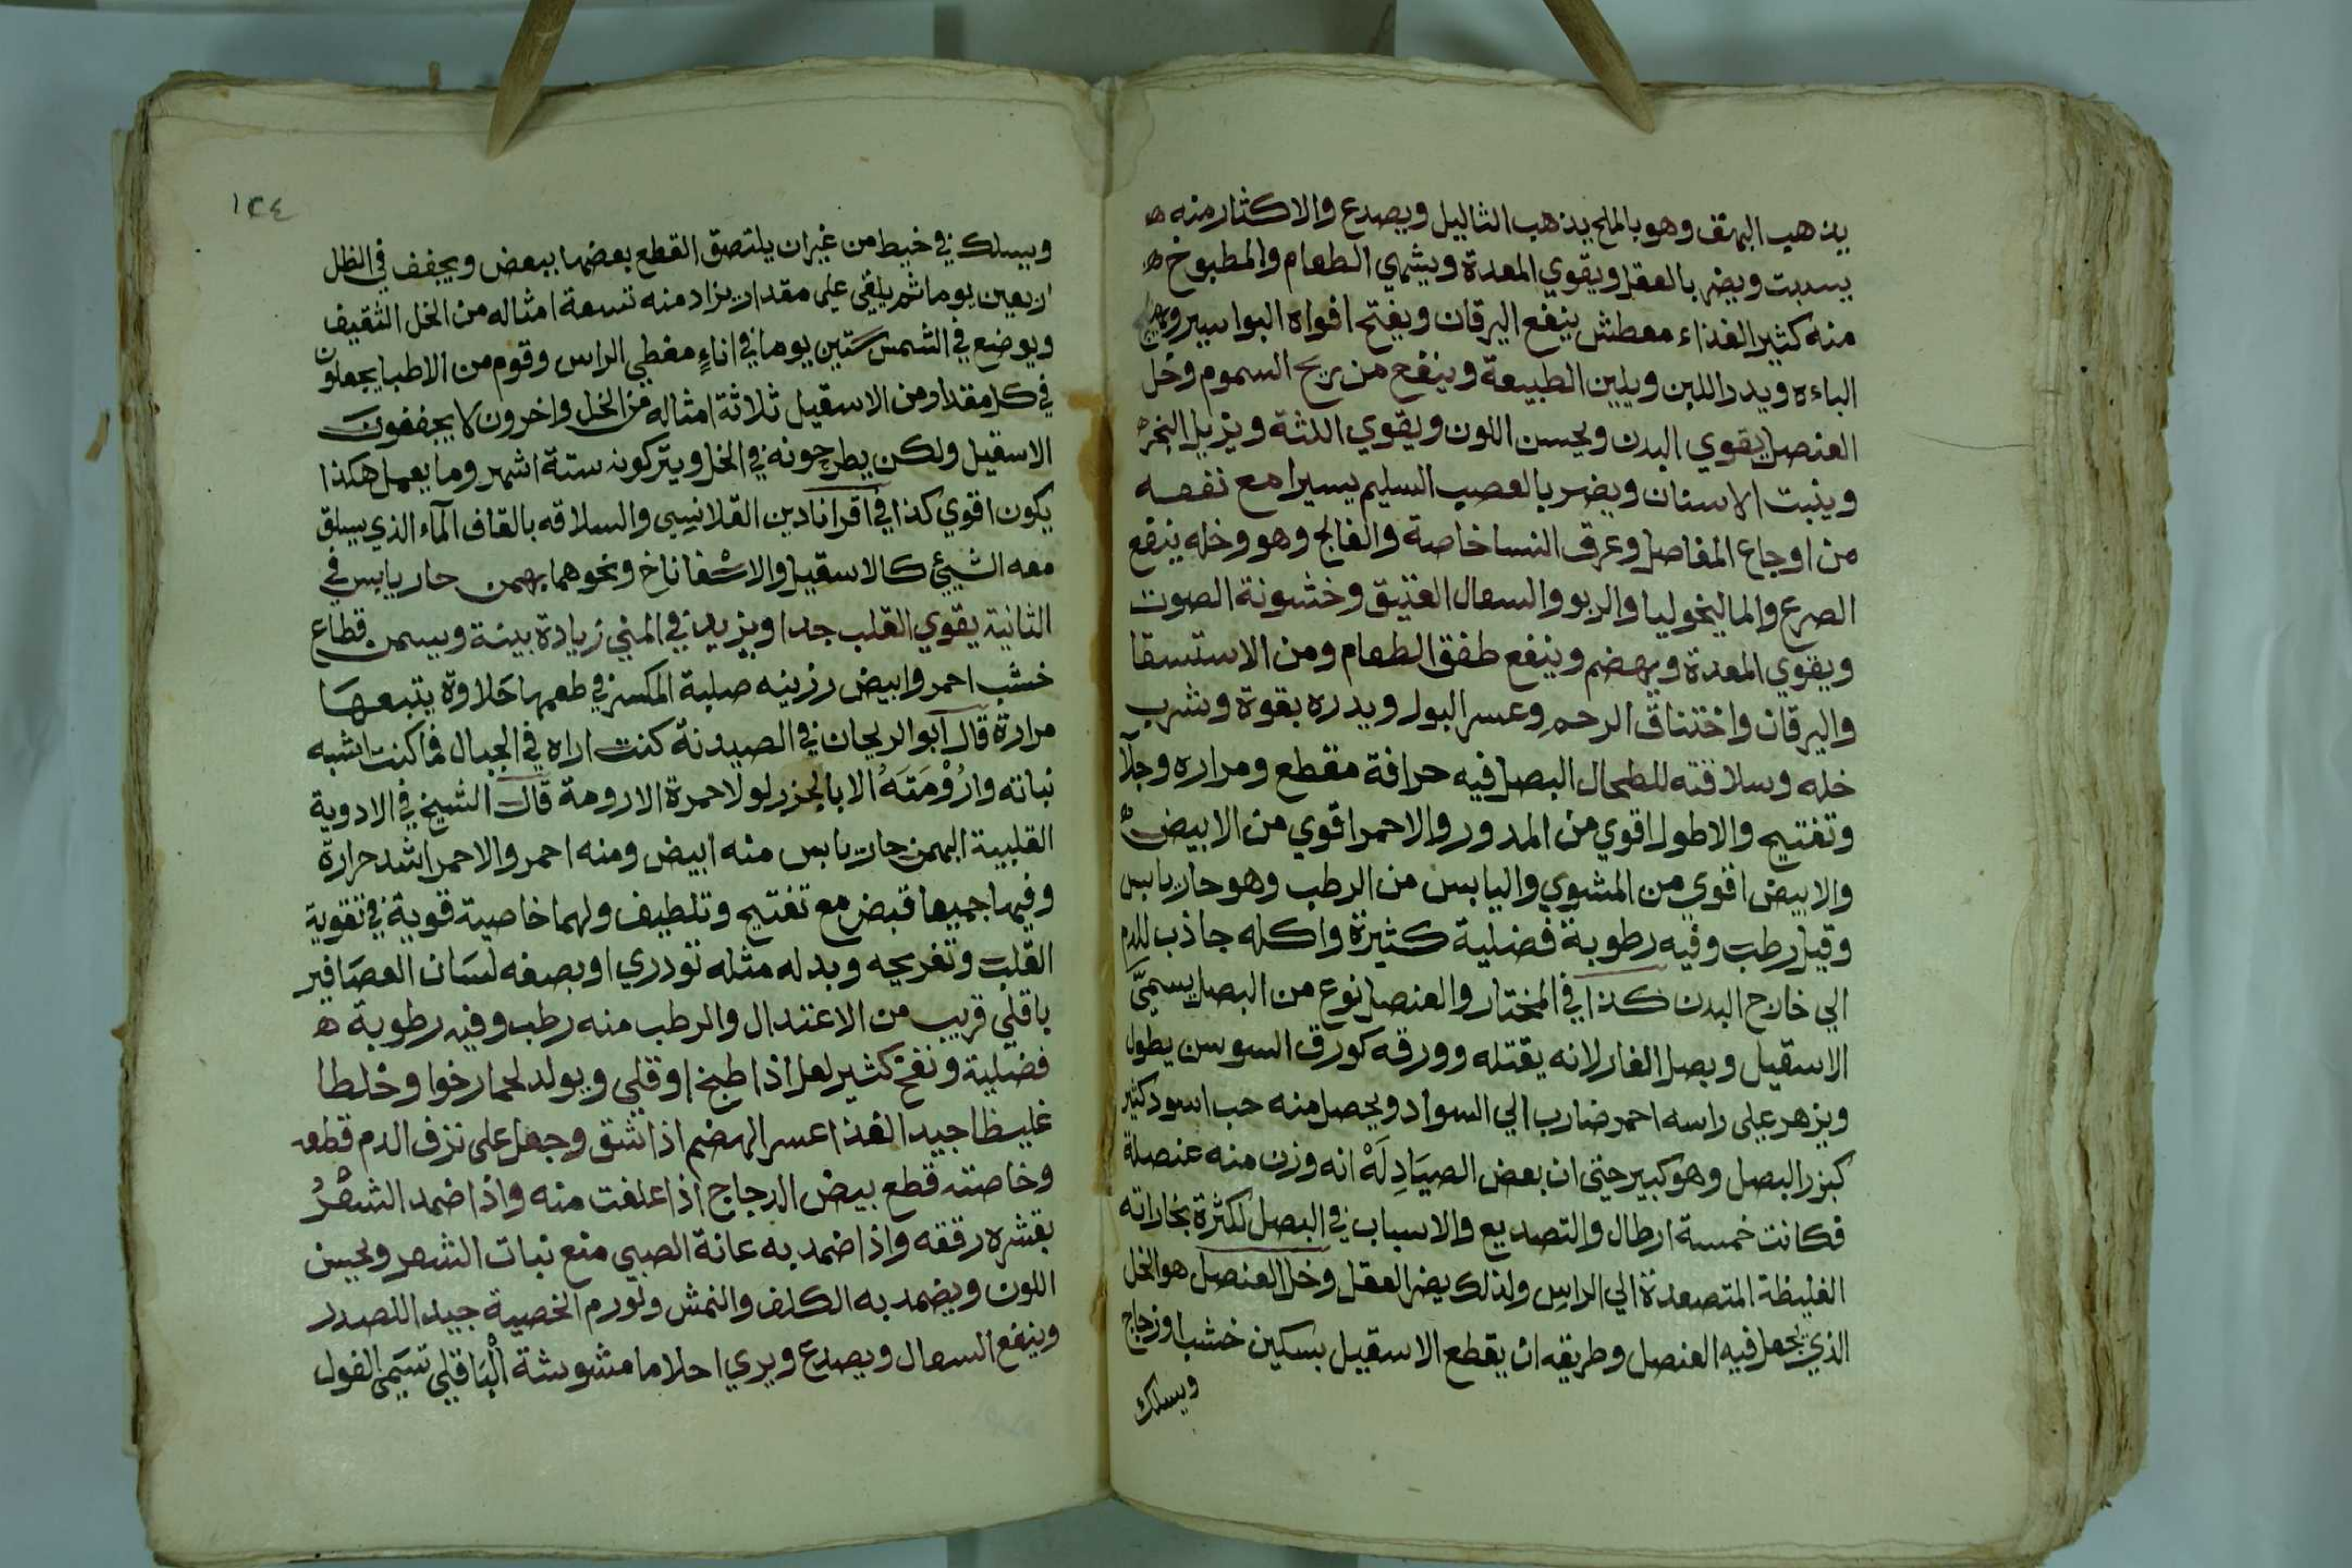 يذهب البهق وهو بالملح يذهب الثاليل ويصدع والاكثار منه ه
يسبت ويضر بالعقل ويقوي المعدة ويشهي الطعام والمطبوخ ه
منه كثير الغذاء معطش ينفع اليرقان ويفتح افواه البواسير ويهيج
الباءه ويدر اللبن ويلين الطبيعة وينفع من ريح السموم وخل
العنصل يقوي البدن ويحسن اللون ويقوي اللثة ويزيل البخر
وينبت الاسنان ويضر بالعصب السليم يسيرا مع نفعه
من اوجاع المفاصل وعرق النسا خاصة والفالج وهو وخله ينفع
الصرع والماليخوليا والربو والسعال العتيق وخشونة الصوت
ويقوي المعدة ويهضم وينفع طفق الطعام ومن الاستسقا
واليرقان واختناق الرحم وعسر البول ويدره بقوة وشرب
خله وسلاقته للطحال البصل فيه حرافة مقطع ومراره وجلآ
وتفتيح والاطول اقوي من المدور والاحمر اقوي من الابيض ه
والابيض اقوي من المشوي واليابس من الرطب وهو حار يابس
وقيل رطب وفيه رطوبة فضلية كثيرة واكله جاذب للدم
الي خارج البدن كذا في المختار والعنصل نوع من البصل يسمّي
الاسقيل وبصل الفار لانه يقتله وورقه كورق السوسن يطول
ويزهر علي راسه احمر ضارب الي السواد ويحصل منه حب اسود كثير
كبزر البصل وهو كبير حتي ان بعض الصيَادِلَهْ انه وزن منه عنصلة
فكانت خمسة ارطال والتصديع والاسباب في البصل لكثرة بخاراته
الغليظة المتصعدة الي الراس ولذلك يضر العقل وخل العنصل هو الخل
الذي يجعل فيه العنصل وطريقه ان يقطع الاسقيل بسكين خشب او زجاج
ويسلك
١٣٤
ويسلك في خيط من غيران يلتصق القطع بعضها ببعض ويجفف في الظل
اربعين يوما ثم يلقي علي مقدار يراد منه تسعة امثاله من الخل الثقيف
ويوضع في الشمس ستين يوما في اناءٍ مغطي الراس وقوم من الاطبا يجعلون
في كل مقدار من الاسقيل ثلاثة امثاله من الخل واخرون لا يجففون
الاسقيل ولكن يطرحونه في الخل ويتركونه ستة اشهر وما يعمل هكذا
يكون اقوي كذا في اقراباذين القلانسي والسلاقه بالقاف المآء الذي يسلق
معه الشيئ كالاسقيل والاسفاناخ ونحوهما بهمن حار يابس في
الثانية يقوي القلب جدا ويزيد في المني زيادة بينة ويسمن قطاع
خشب احمر وابيض رزينه صلبة المكسر في طعمها حَلاوة يتبعها
مرارة قال ابو الريحان في الصيدنة كنت اراه في الجبال فما كنت اشبه
نباته وارُوْمَتَهُ الا بالجزر لولا حمرة الارومة قال الشيخ في الادوية
القلبية البهمن حار يابس منه ابيض ومنه احمر والاحمر اشد حرارة
وفيها جميعا قبض مع تفتيح وتلطيف ولهما خاصية قوية في تقوية
القلب وتفريحه وبدله مثله تودري او بصفه لسَان العصَافير
باقلي قريب من الاعتدال والرطب منه رطب وفيه رطوبة ه
فضلية ونفخ كثير لعل اذا طبخ او قلي ويولد لحما رخوا وخلطا
غليظا جيد الغذا عسر الهضم اذا شق وجعل علي نزف الدم قطعه
وخاصته قطع بيض الدجاج اذا علفت منه واذا ضمد الشعْرُ
بقشره رققه واذا ضمد به عانة الصبي منع نبات الشعر ويحسن
اللون ويضمد به الكلف والنمش ولورم الخصية جيد اللصدر
وينفع السعال ويصدع ويري احلاما مشوشة البَاقلي تسَمي الفول